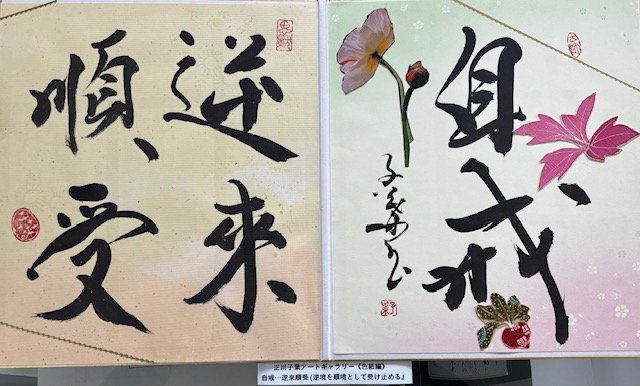 自戒
子葉書
逆來
順受
正川子葉アートギャラリー《色紙編》
自戒…逆来順受(逆境を順境として受け止める』